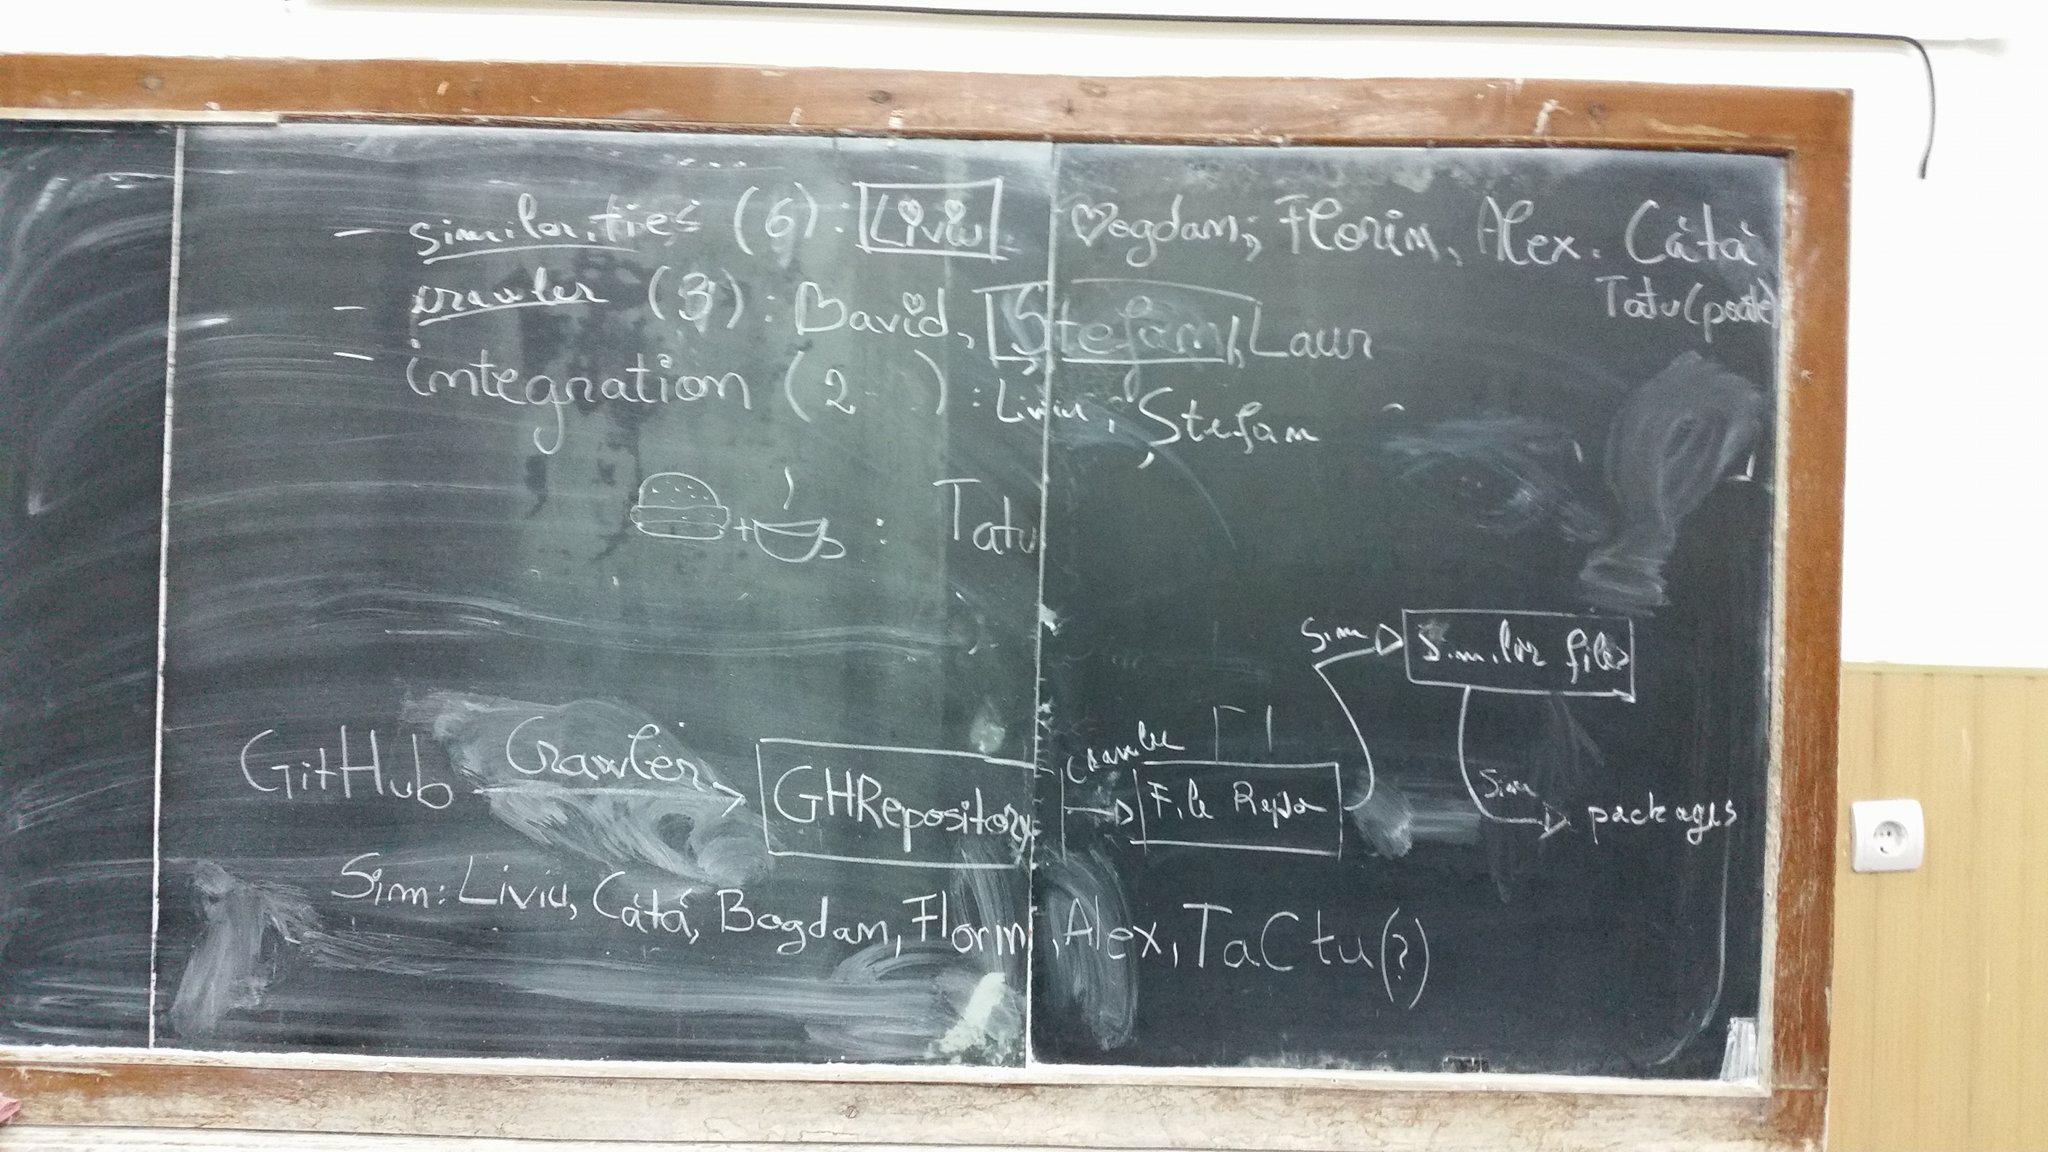 - similarities (6): Liviu, Bogdan, Florin, Alex. Cătă
Tatu (poate)
- crawler (3): David, Ștefan, Laur
- integration (2 ): Liviu, Ștefan
+ : Tatu
Sim
Similar files
GitHub Crawler GHRepository Crawler File Repo
Sim packages
Sim: Liviu, Cătă, Bogdan, Florin, Alex, TaCtu(?)